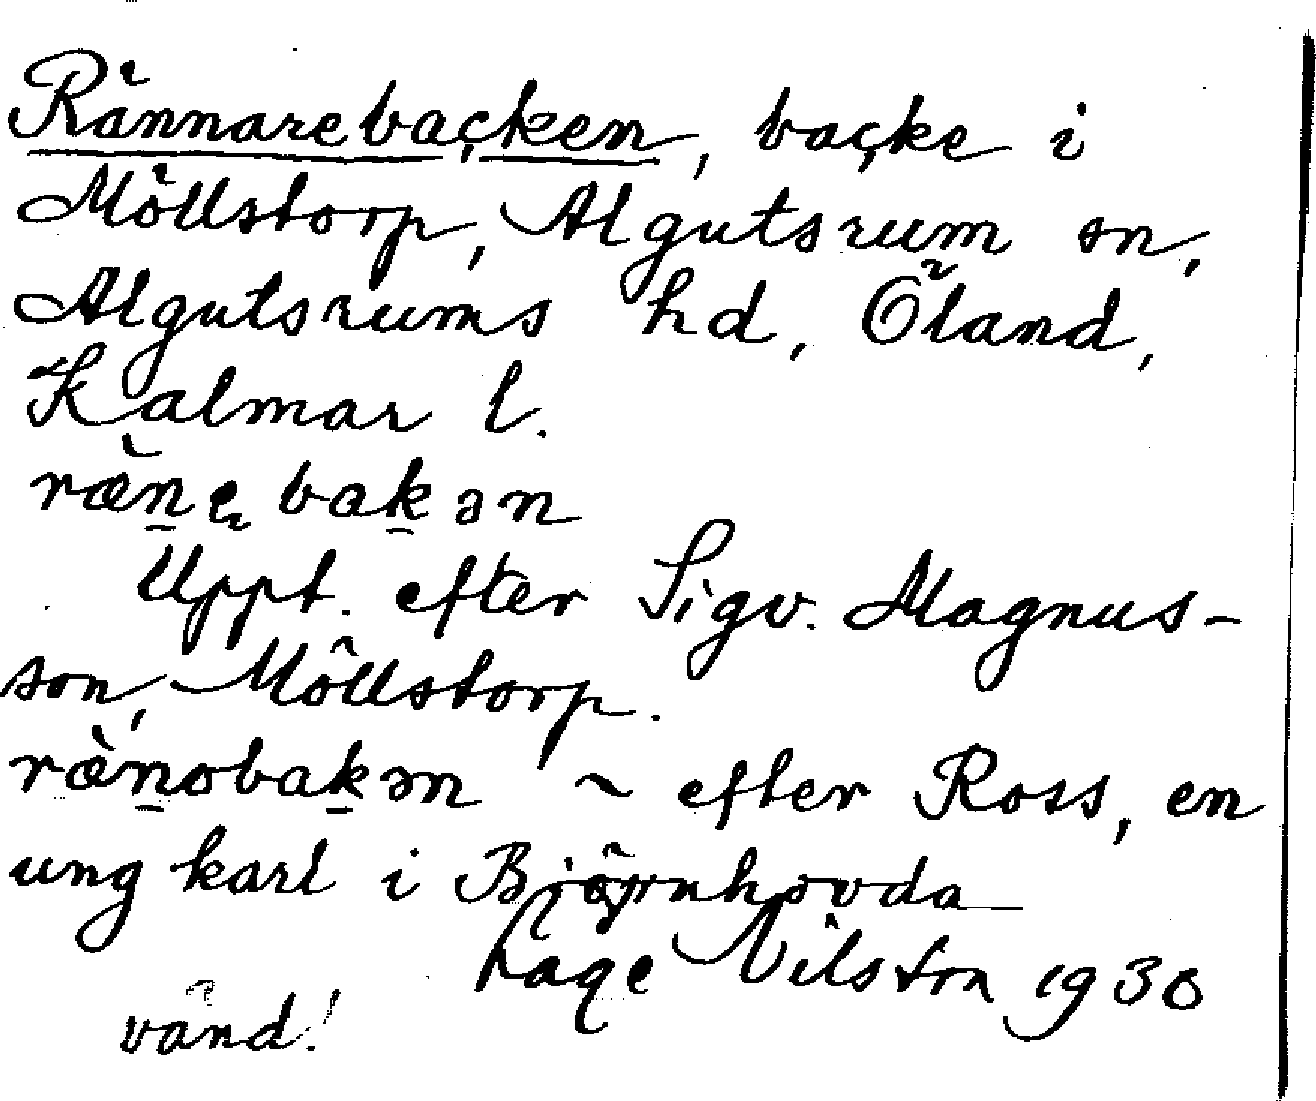 Rännarebacken, backe i
Möllstorp, Algutsrum sn,
Algutsrums hd, Öland,
Kalmar l.
ræ̀n̠ębak̠ən
Uppt. efter Sigv. Magnus-
son, Möllstorp.
ræ̀n̠obak̠ən ~ efter Ross, en
ung karl i Björnhovda
Lage Nilsson 1930
vänd!